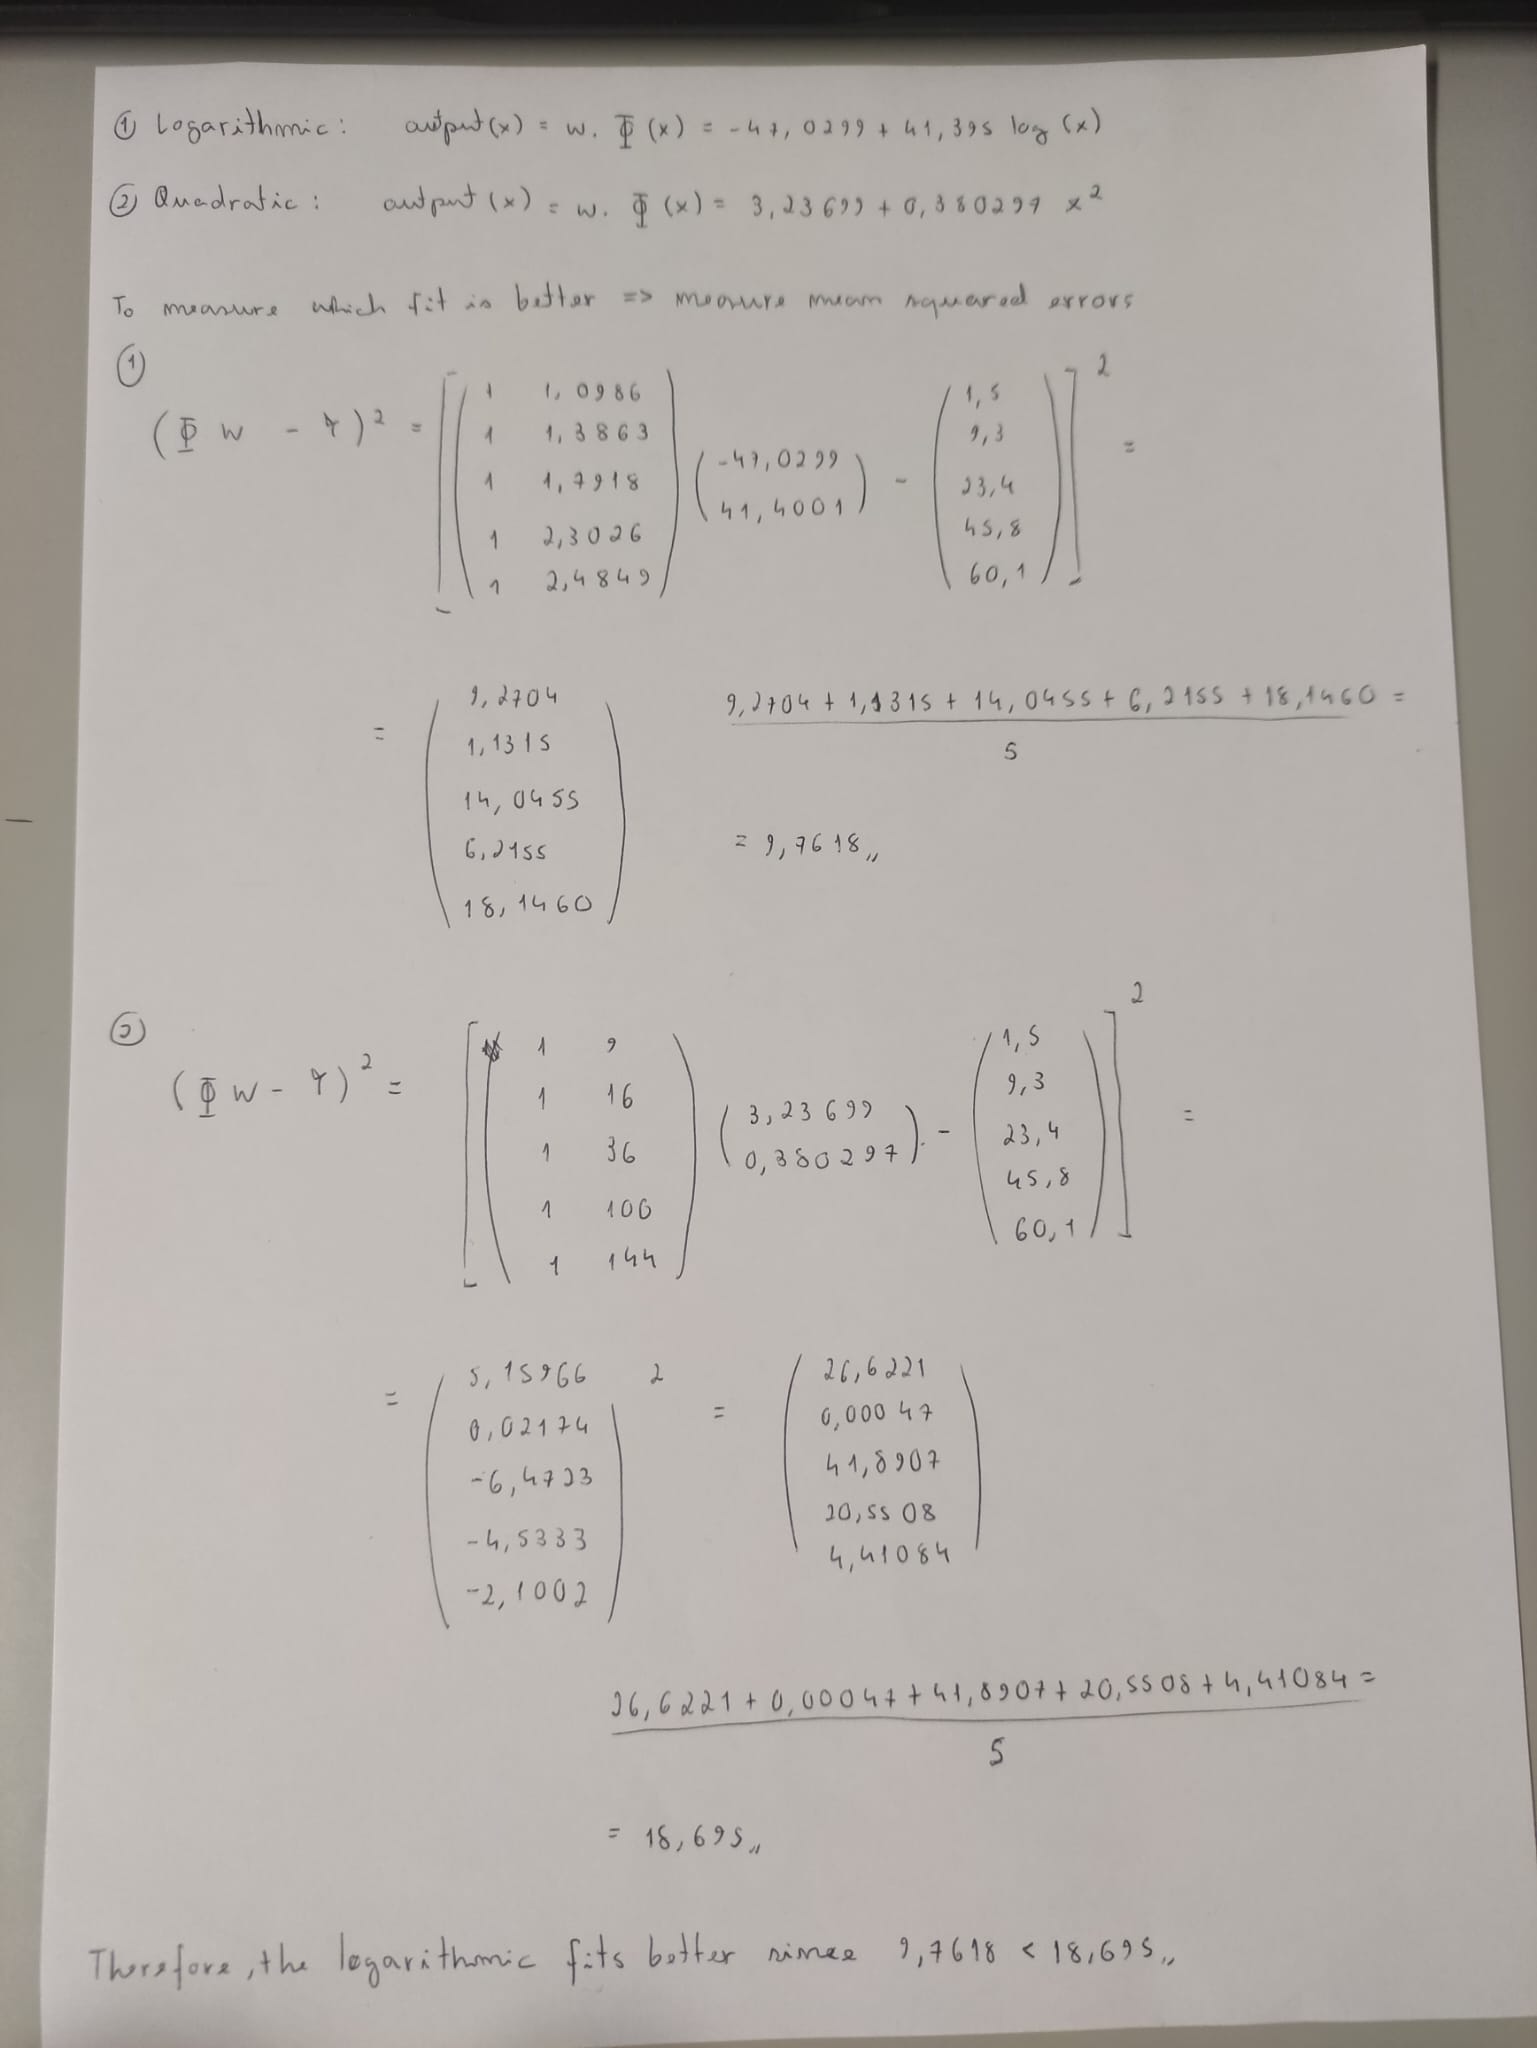 ① Logarithmic: output(x) = w. Φ(x) = -47,0299 + 41,395 log(x)
② Quadratic: output(x) = w. Φ(x) = 3,23699 + 0,380297 x²
To measure which fit is better => measure mean squared errors
①
(Φ w - Y)² = [ ( 1 1,0986
1 1,3863
1 1,7918
1 2,3026
1 2,4849 ) ( -47,0299
41,4001 ) - ( 1,5
9,3
23,4
45,8
60,1 ) ]² =
= ( 9,2704
1,1315
14,0455
6,2155
18,1460 )
9,2704 + 1,1315 + 14,0455 + 6,2155 + 18,1460 =
5
= 9,7618,,
②
(Φ w - Y)² = [ ( 1 9
1 16
1 36
1 100
1 144 ) ( 3,23699
0,380297 ). - ( 1,5
9,3
23,4
45,8
60,1 ) ]² =
= ( 5,15966
0,02174
-6,4723
-4,5333
-2,1002 )² = ( 26,6221
0,00047
41,8907
20,5508
4,41084 )
26,6221 + 0,00047 + 41,8907 + 20,5508 + 4,41084 =
5
= 18,695,,
Therefore, the logarithmic fits better since 9,7618 < 18,695,,